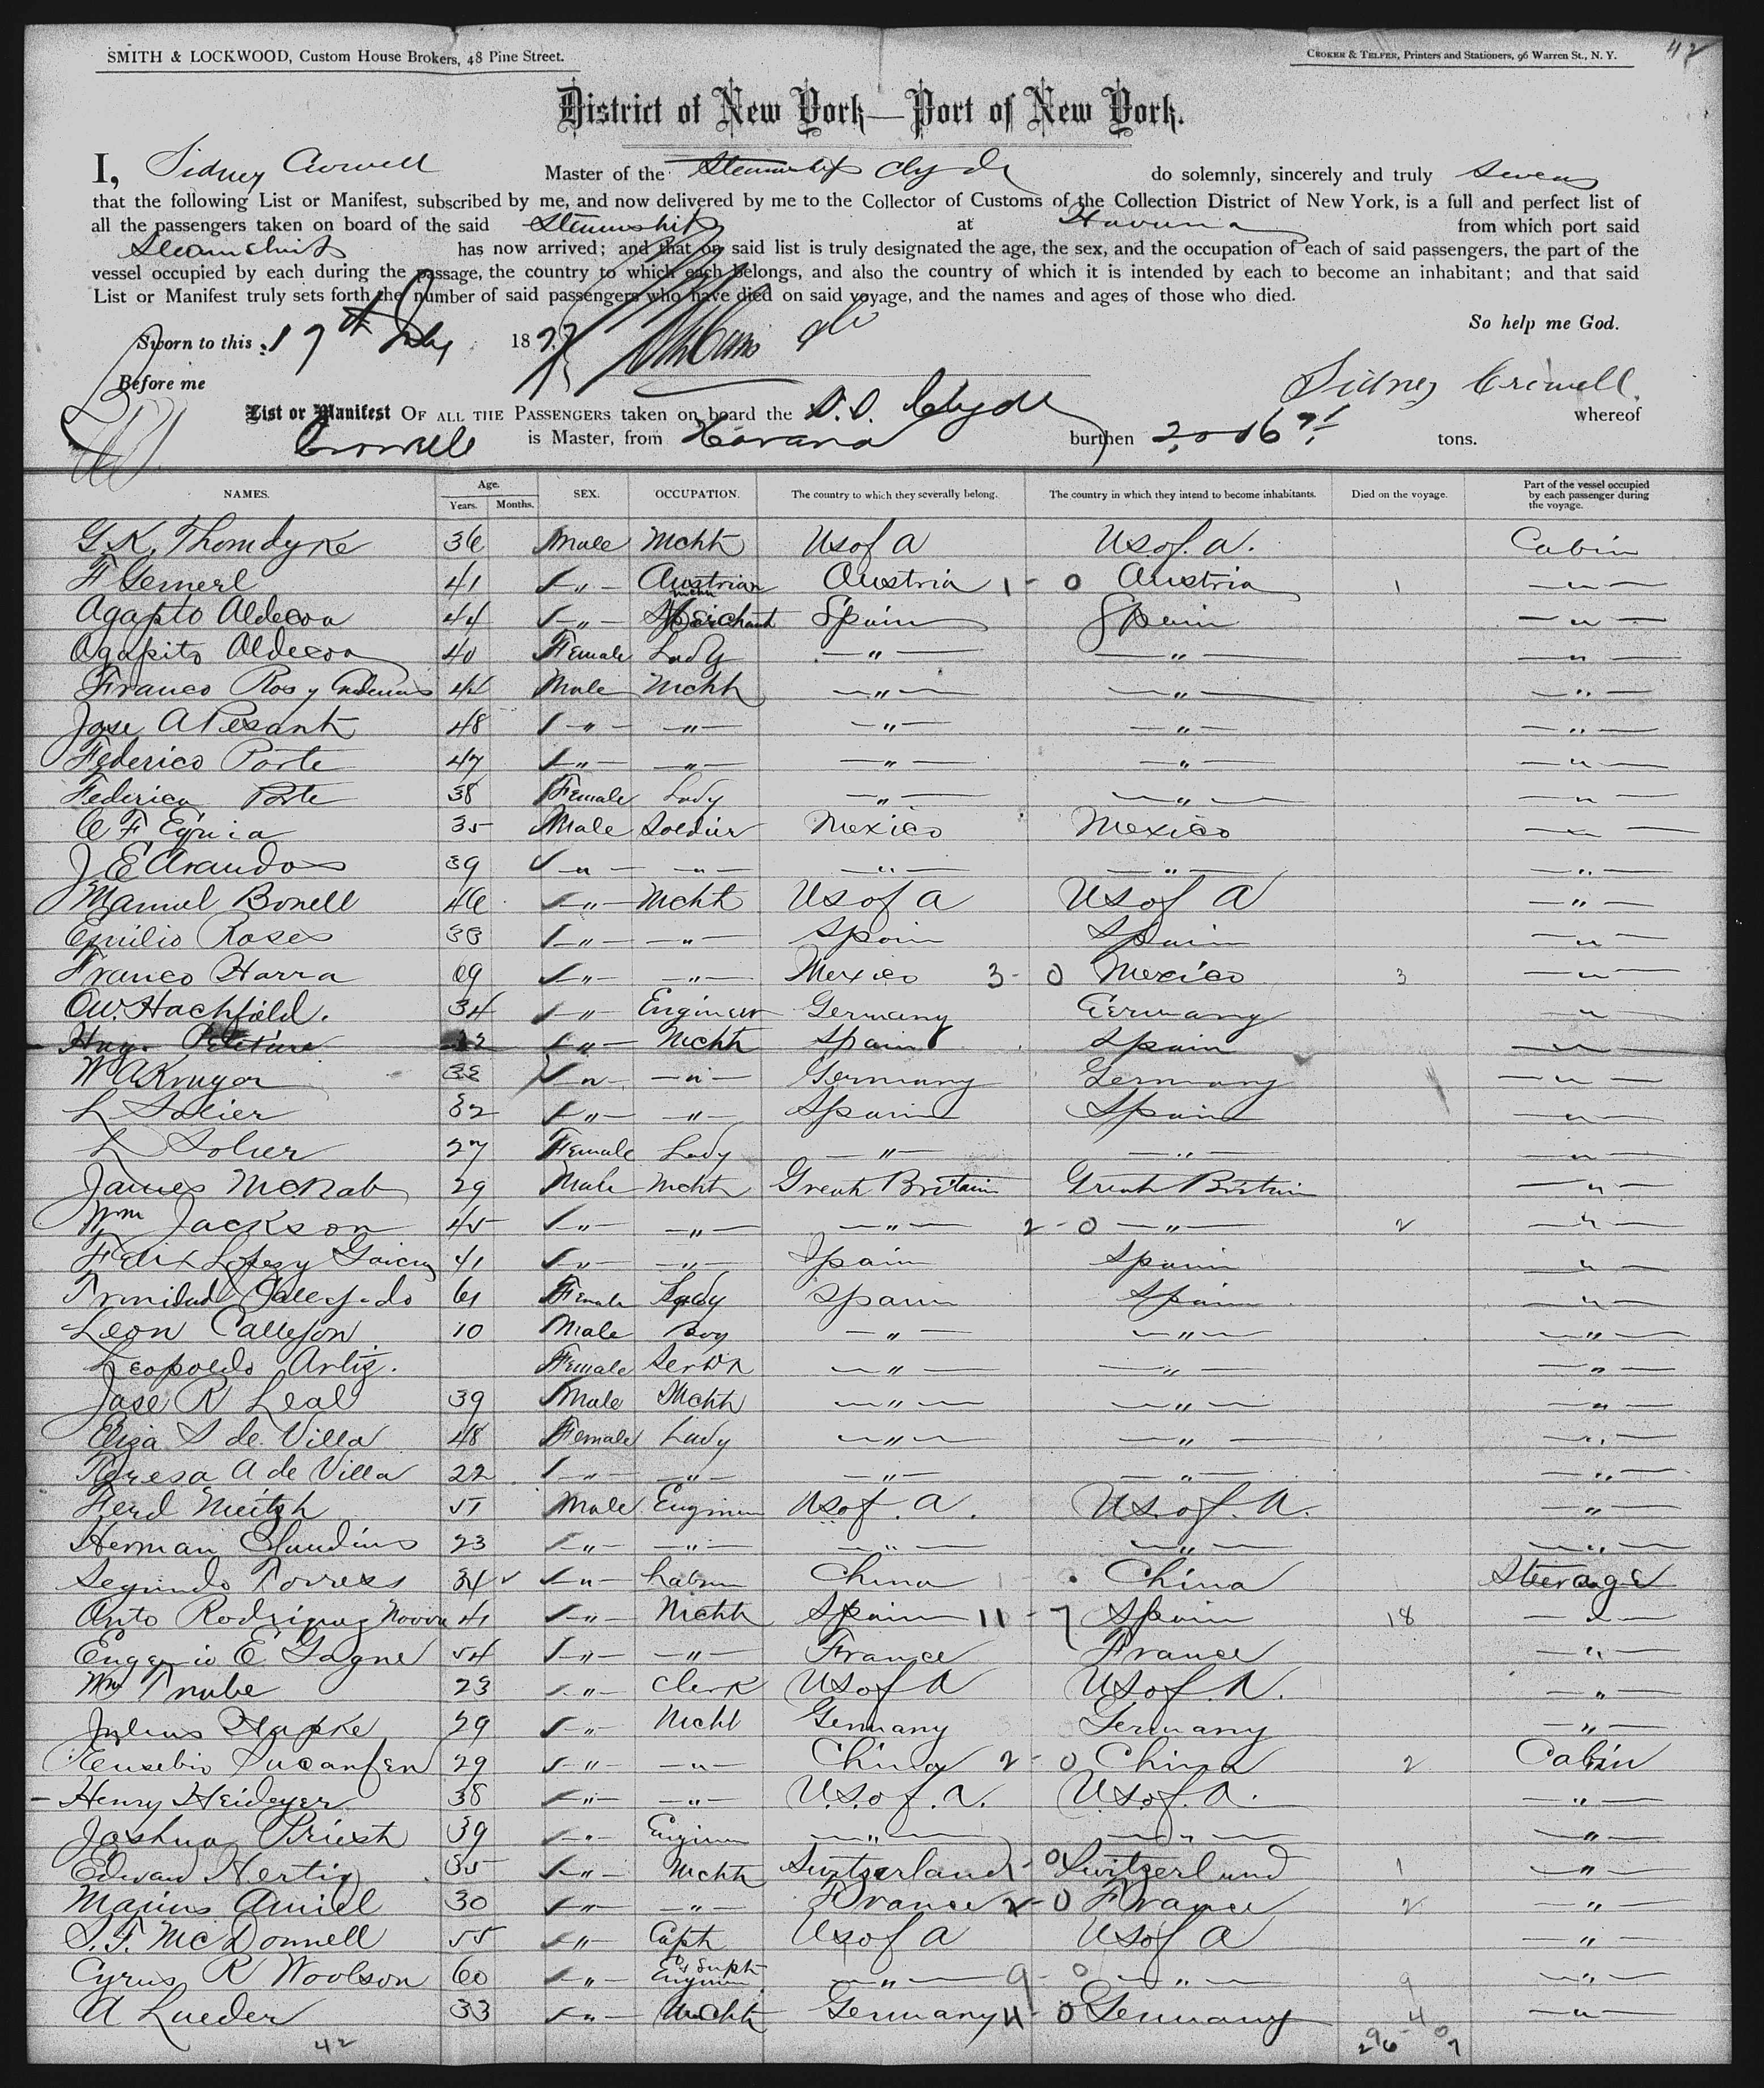 42
SMITH & LOCKWOOD, Custom House Brokers, 48 Pine Street. CROKER & TELFER, Printers and Stationers, 96 Warren St., N. Y.
District of New York—Port of New York.
I, Sidney Crowell Master of the Steamship Clyde do solemnly, sincerely and truly swear
that the following List or Manifest, subscribed by me, and now delivered by me to the Collector of Customs of the Collection District of New York, is a full and perfect list of
all the passengers taken on board of the said Steamship at Havana from which port said
Steamship has now arrived; and that on said list is truly designated the age, the sex, and the occupation of each of said passengers, the part of the
vessel occupied by each during the passage, the country to which each belongs, and also the country of which it is intended by each to become an inhabitant; and that said
List or Manifest truly sets forth the number of said passengers who have died on said voyage, and the names and ages of those who died.
So help me God.
Sworn to this 17th July 1877
Before me Sidney Crowell
List or Manifest OF ALL THE PASSENGERS taken on board the S.S. Clyde whereof
Crowell is Master, from Havana burthen 2006 tons.
NAMES. Age. Years. Months. SEX. OCCUPATION. The country to which they severally belong. The country in which they intend to become inhabitants. Died on the voyage. Part of the vessel occupied by each passenger during the voyage.
G. K. Thorndyke 36 Male Mcht U S of A U S of. A. Cabin
F Gemerl 41 " Austrian Austria 1 - 0 Austria 1 "
Agapto Aldecoa 44 " Merchant Spain Spain "
Agapito Aldecoa 40 Female Lady " " "
Franco Ros y 42 Male Mcht " " "
Jose A Pesant 48 " " " " "
Federico Porte 47 " " " " "
Federica Porte 38 Female Lady " " "
C F Eguia 35 Male Soldier Mexico Mexico "
J E Arandos 39 " " " " "
Manuel Bonell 46 " Mcht U S of A U S of A "
Emilio Roses 33 " " Spain Spain "
Franco Harra 69 " " Mexico 3 - 0 Mexico 3 "
O W. Hachfield. 34 " Engineer Germany Germany "
" Mcht Spain Spain "
W A Krugar 33 " " Germany Germany "
L Solier 32 " " Spain Spain "
L Solier 27 Female Lady " " "
James McNab 29 Male Mcht Great Britain Great Britain "
Wm Jackson 45 " " " 2 - 0 " 2 "
Felix Lopez y Garcia 41 " " Spain Spain "
Trinidad 61 Female Lady Spain Spain "
Leon Callejon 10 Male Boy " " "
Leopoldo Artiz. Female Servt " " "
Jose R Leal 39 Male Mcht " " "
Eliza S de Villa 48 Female Lady " " "
Teresa A de Villa 22 " " " " "
Ferd 51 Male Engineer U S of. A. U S. of. A. "
Herman Claudius 23 " " " " "
Segundo Torres 34 " Labour China 1 China Steerage
Anto Rodriguez 41 " Mcht Spain 11 - 7 Spain 18 "
Eugenio E Gagne 54 " " France France "
Wm Trube 23 " Clerk U S of A U S of. A. "
Julius Hapke 29 " Mcht Germany Germany "
Eusebio 29 " " China 2 - 0 China 2 Cabin
Henry Heideyer 38 " " U.S. of. A. U S. of. A. "
Joshua Priest 39 " Engineer " " "
Edward Hertig 35 " Mcht Switzerland 1 - 0 Switzerland 1 "
Marius Amiel 30 " " France 2 - 0 France 2 "
S. F. McDonnell 55 " Capt U S of A U S of A "
Cyrus R Woolson 60 " Engineer " 9 - 0 " 9 "
A Lueder 33 " Mcht Germany 4 - 0 Germany 4 "
42